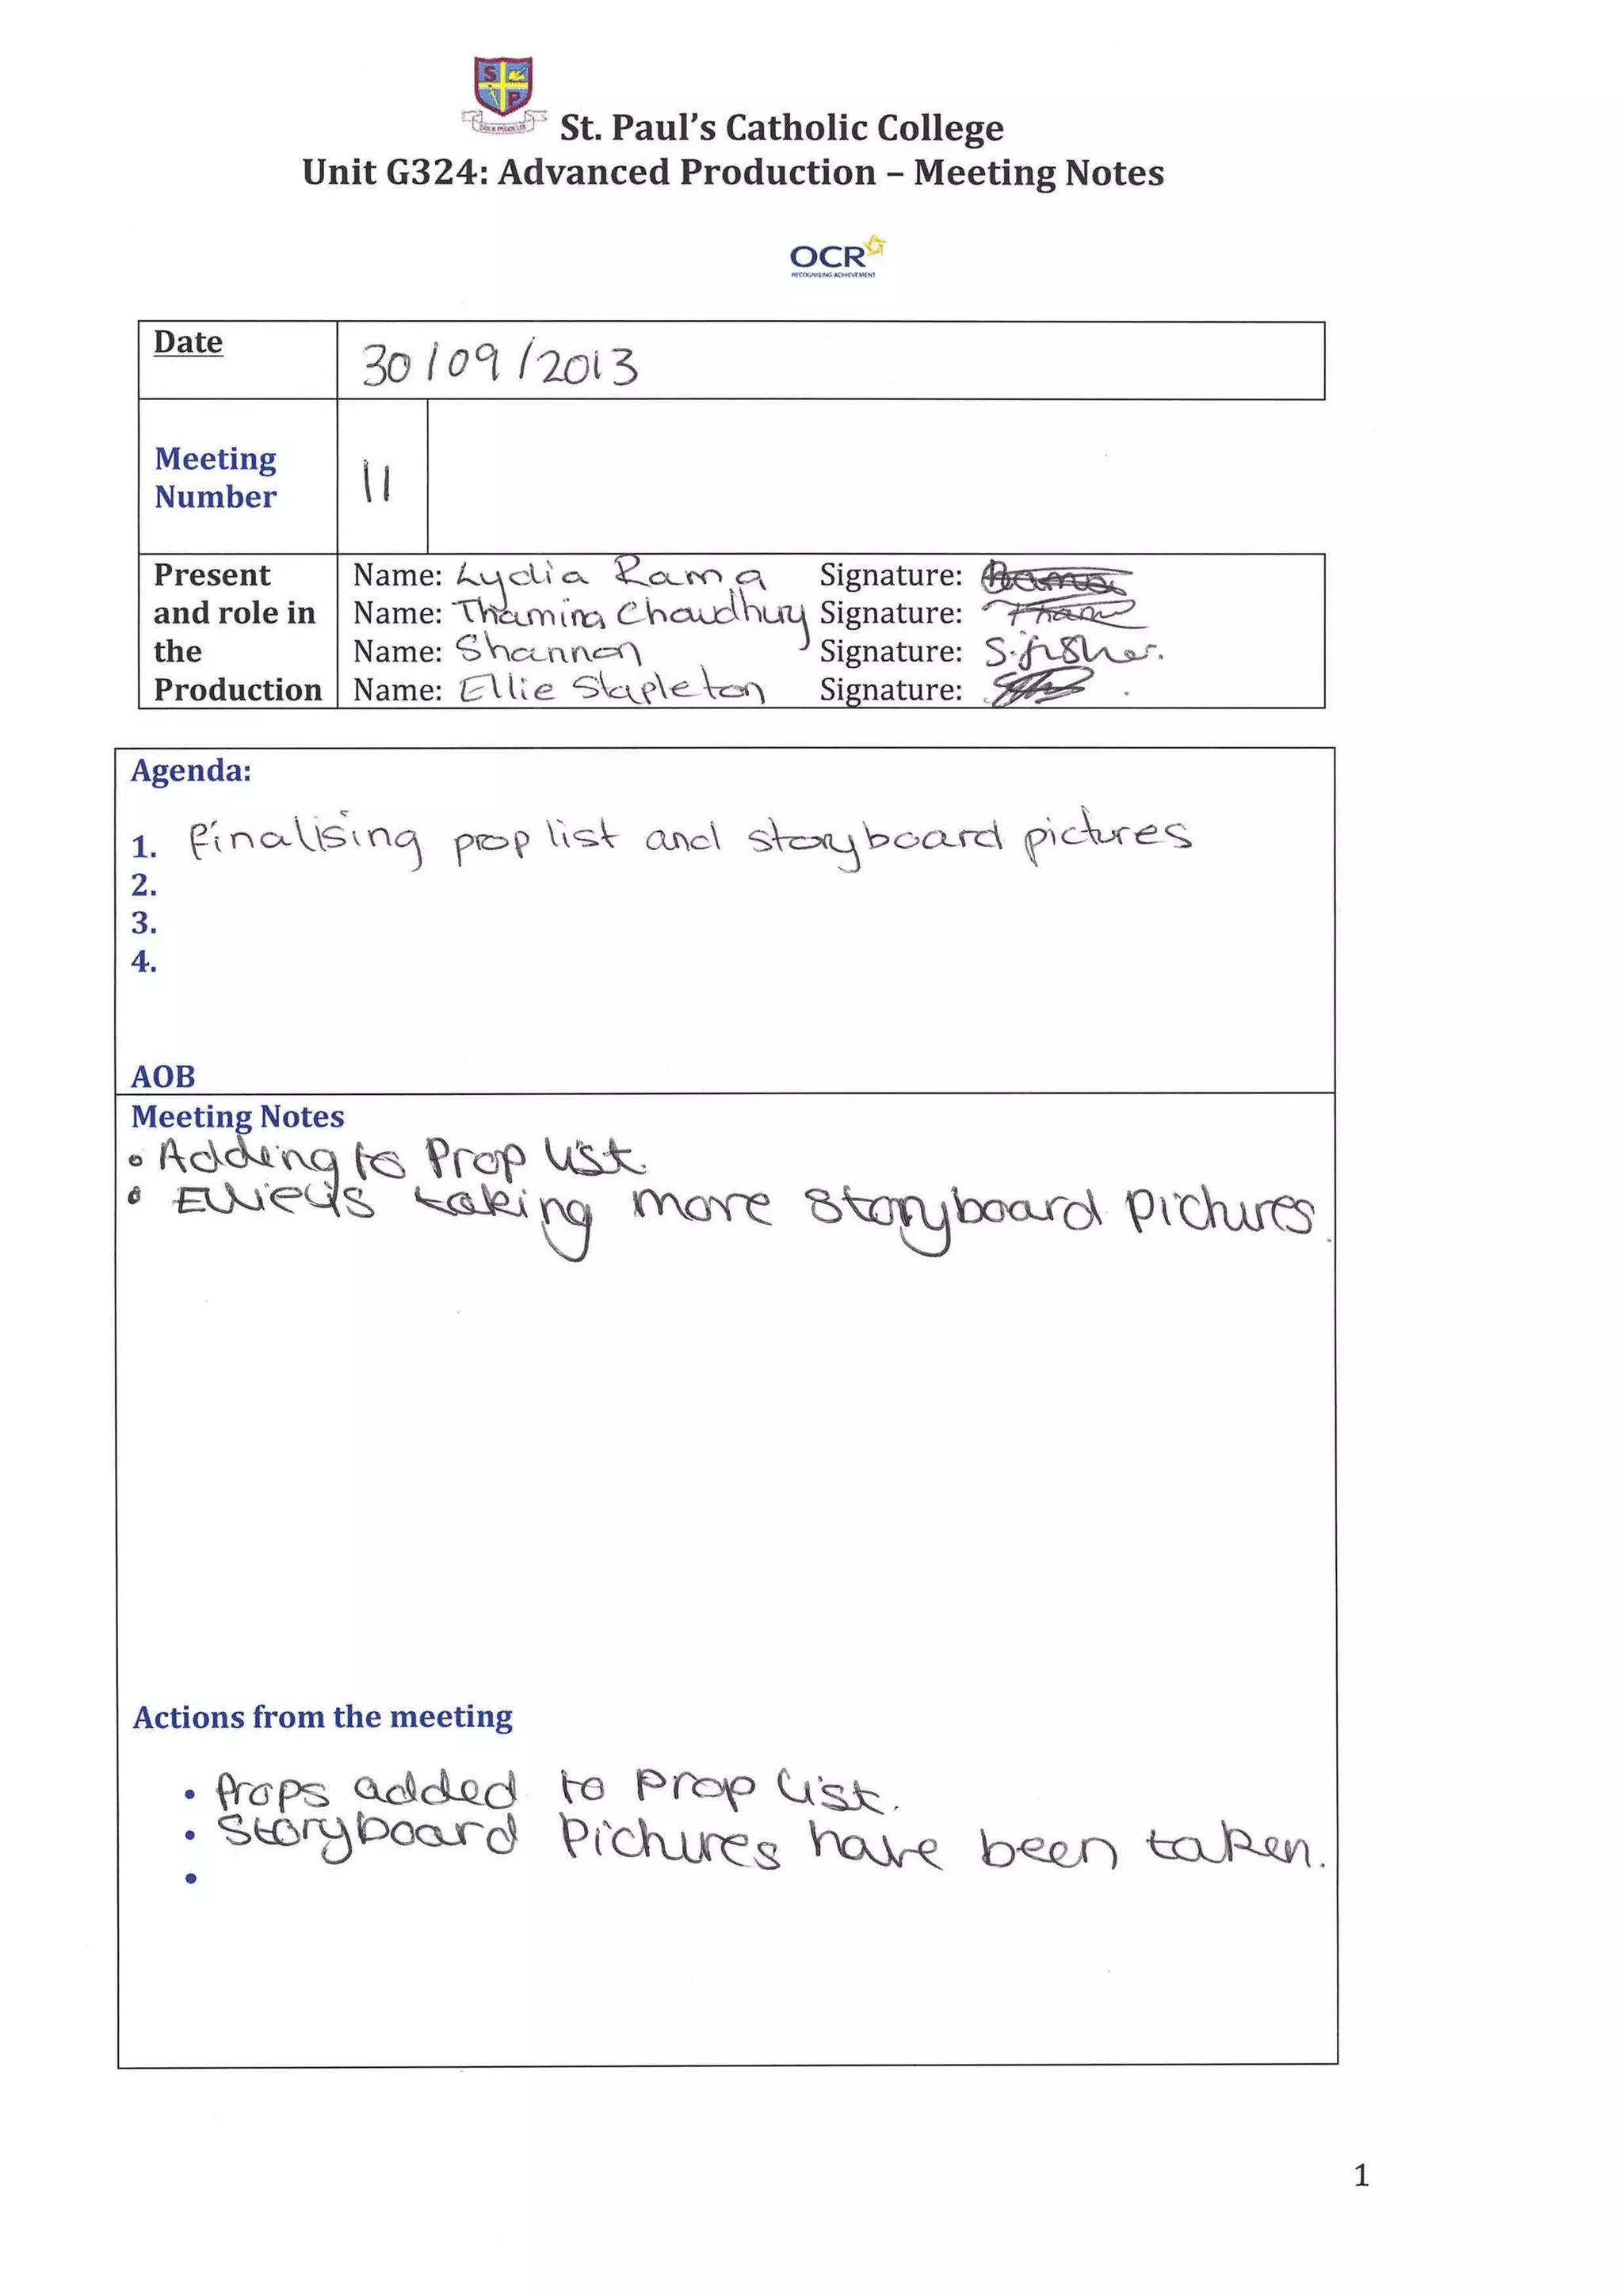 S
P
St. Paul's Catholic College
Unit G324: Advanced Production – Meeting Notes
OCR
RECOGNISING ACHIEVEMENT
Date
30/09/2013
Meeting
Number
11
Present
and role in
the
Production
Name: Lydia Rama Signature: Rama
Name: Thamina Chaudhury Signature: Tham
Name: Shannon Signature: S.fisher.
Name: Ellie Stapleton Signature:
Agenda:
1. Finalising prop list and storyboard pictures
2.
3.
4.
AOB
Meeting Notes
• Adding to Prop list.
• Ellie is taking more storyboard pictures.
Actions from the meeting
• Props added to prop list.
• Storyboard pictures have been taken.
•
1